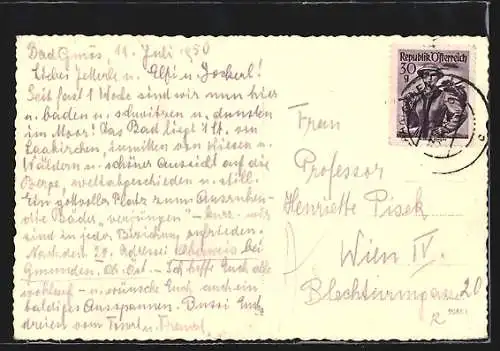 Bad Gmös, 11. Juli 1950
Liebes u. Elfi u. Jockerl!
Seit fast 1 Woche sind wir nun hier
u. baden u. schwitzen u. dunsten
im Moor! Das Bad liegt 1 St. von
Laakirchen, inmitten von Wiesen u.
Wäldern u. schöner Aussicht auf die
Berge, weltabgeschieden u. still.
Ein gottvoller Platz zum Ausruhen-
die Bäder "verjüngen" - kurz: wir
sind in jeder Beziehung zufrieden.
Nach dem 20. Adresse: Ohlsweis bei
Gmunden, Ob. Öst. - Ich hoffe Euch alle
wohlauf - u. wünsche Euch auch ein
baldiges Ausspannen. Bussi Euch
dreien vom u.
Republik Österreich
30
Frau
Professor
Henriette Pisek
Wien IV.
Blechturmgasse 20